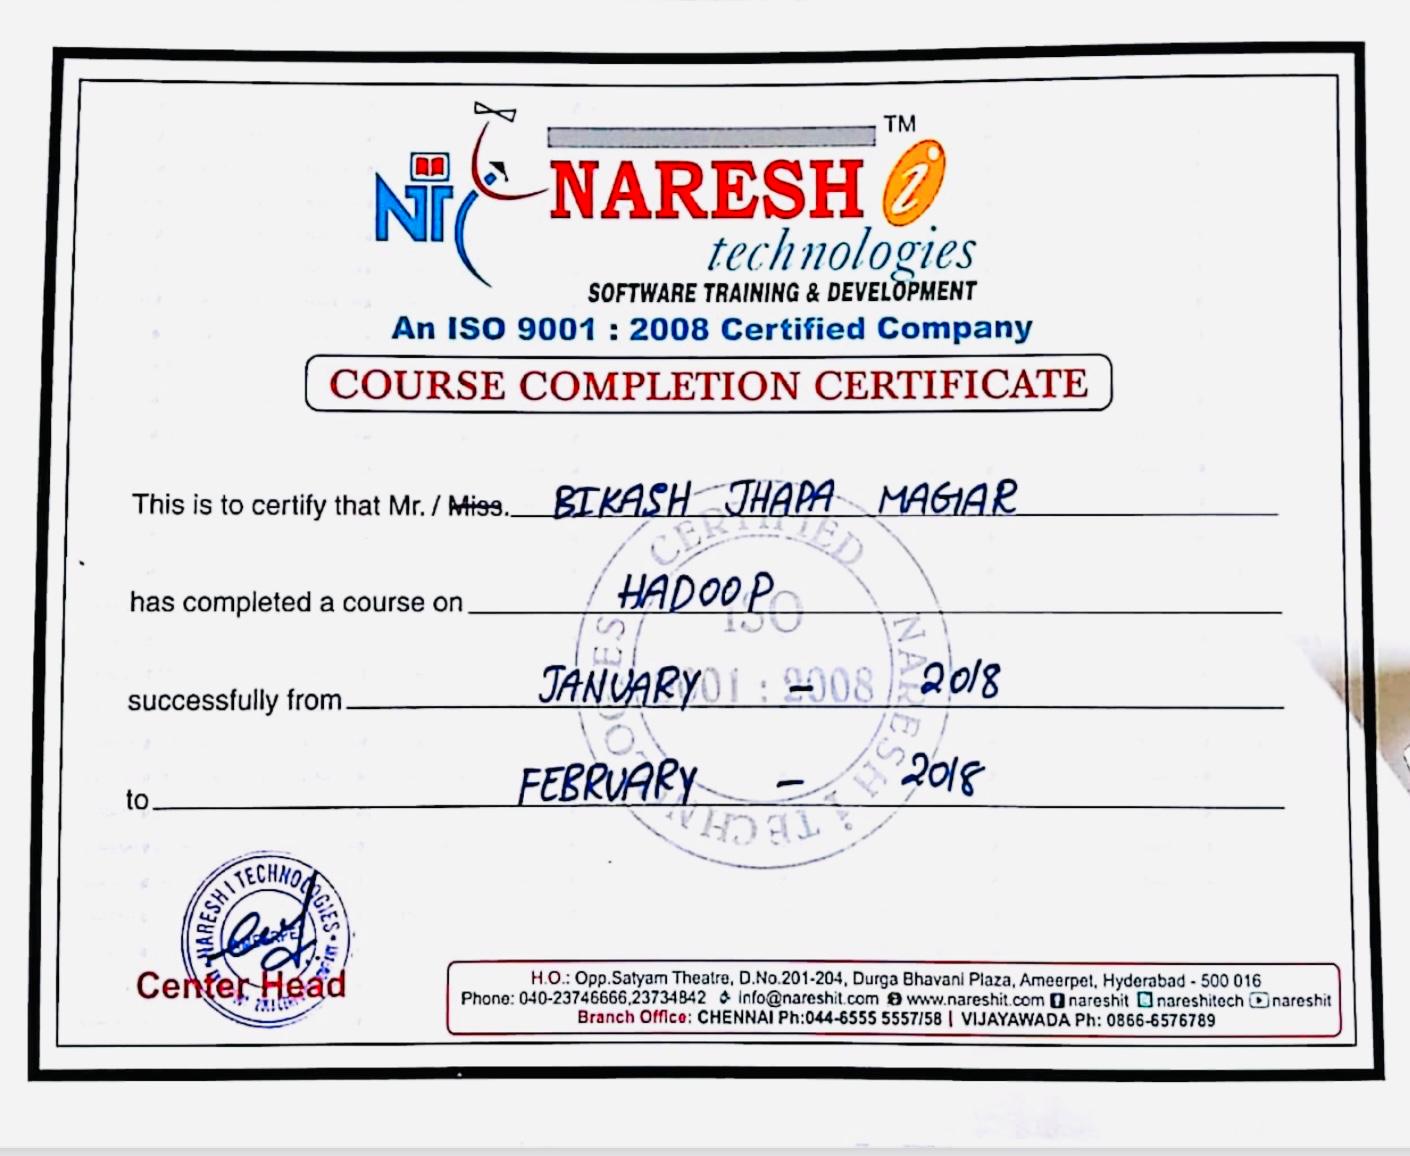 TM
NT
NARESH i
technologies
SOFTWARE TRAINING & DEVELOPMENT
An ISO 9001 : 2008 Certified Company
COURSE COMPLETION CERTIFICATE
This is to certify that Mr. / Miss. BIKASH JHAPA MAGAR
has completed a course on HADOOP
successfully from JANUARY - 2018
to FEBRUARY - 2018
CERTIFIED
ISO
9001 : 2008
NARESH i TECHNOLOGIES
NARESH I TECHNOLOGIES
Center Head
H.O.: Opp.Satyam Theatre, D.No.201-204, Durga Bhavani Plaza, Ameerpet, Hyderabad - 500 016
Phone: 040-23746666,23734842 info@nareshit.com www.nareshit.com nareshit nareshitech nareshit
Branch Office: CHENNAI Ph:044-6555 5557/58 | VIJAYAWADA Ph: 0866-6576789